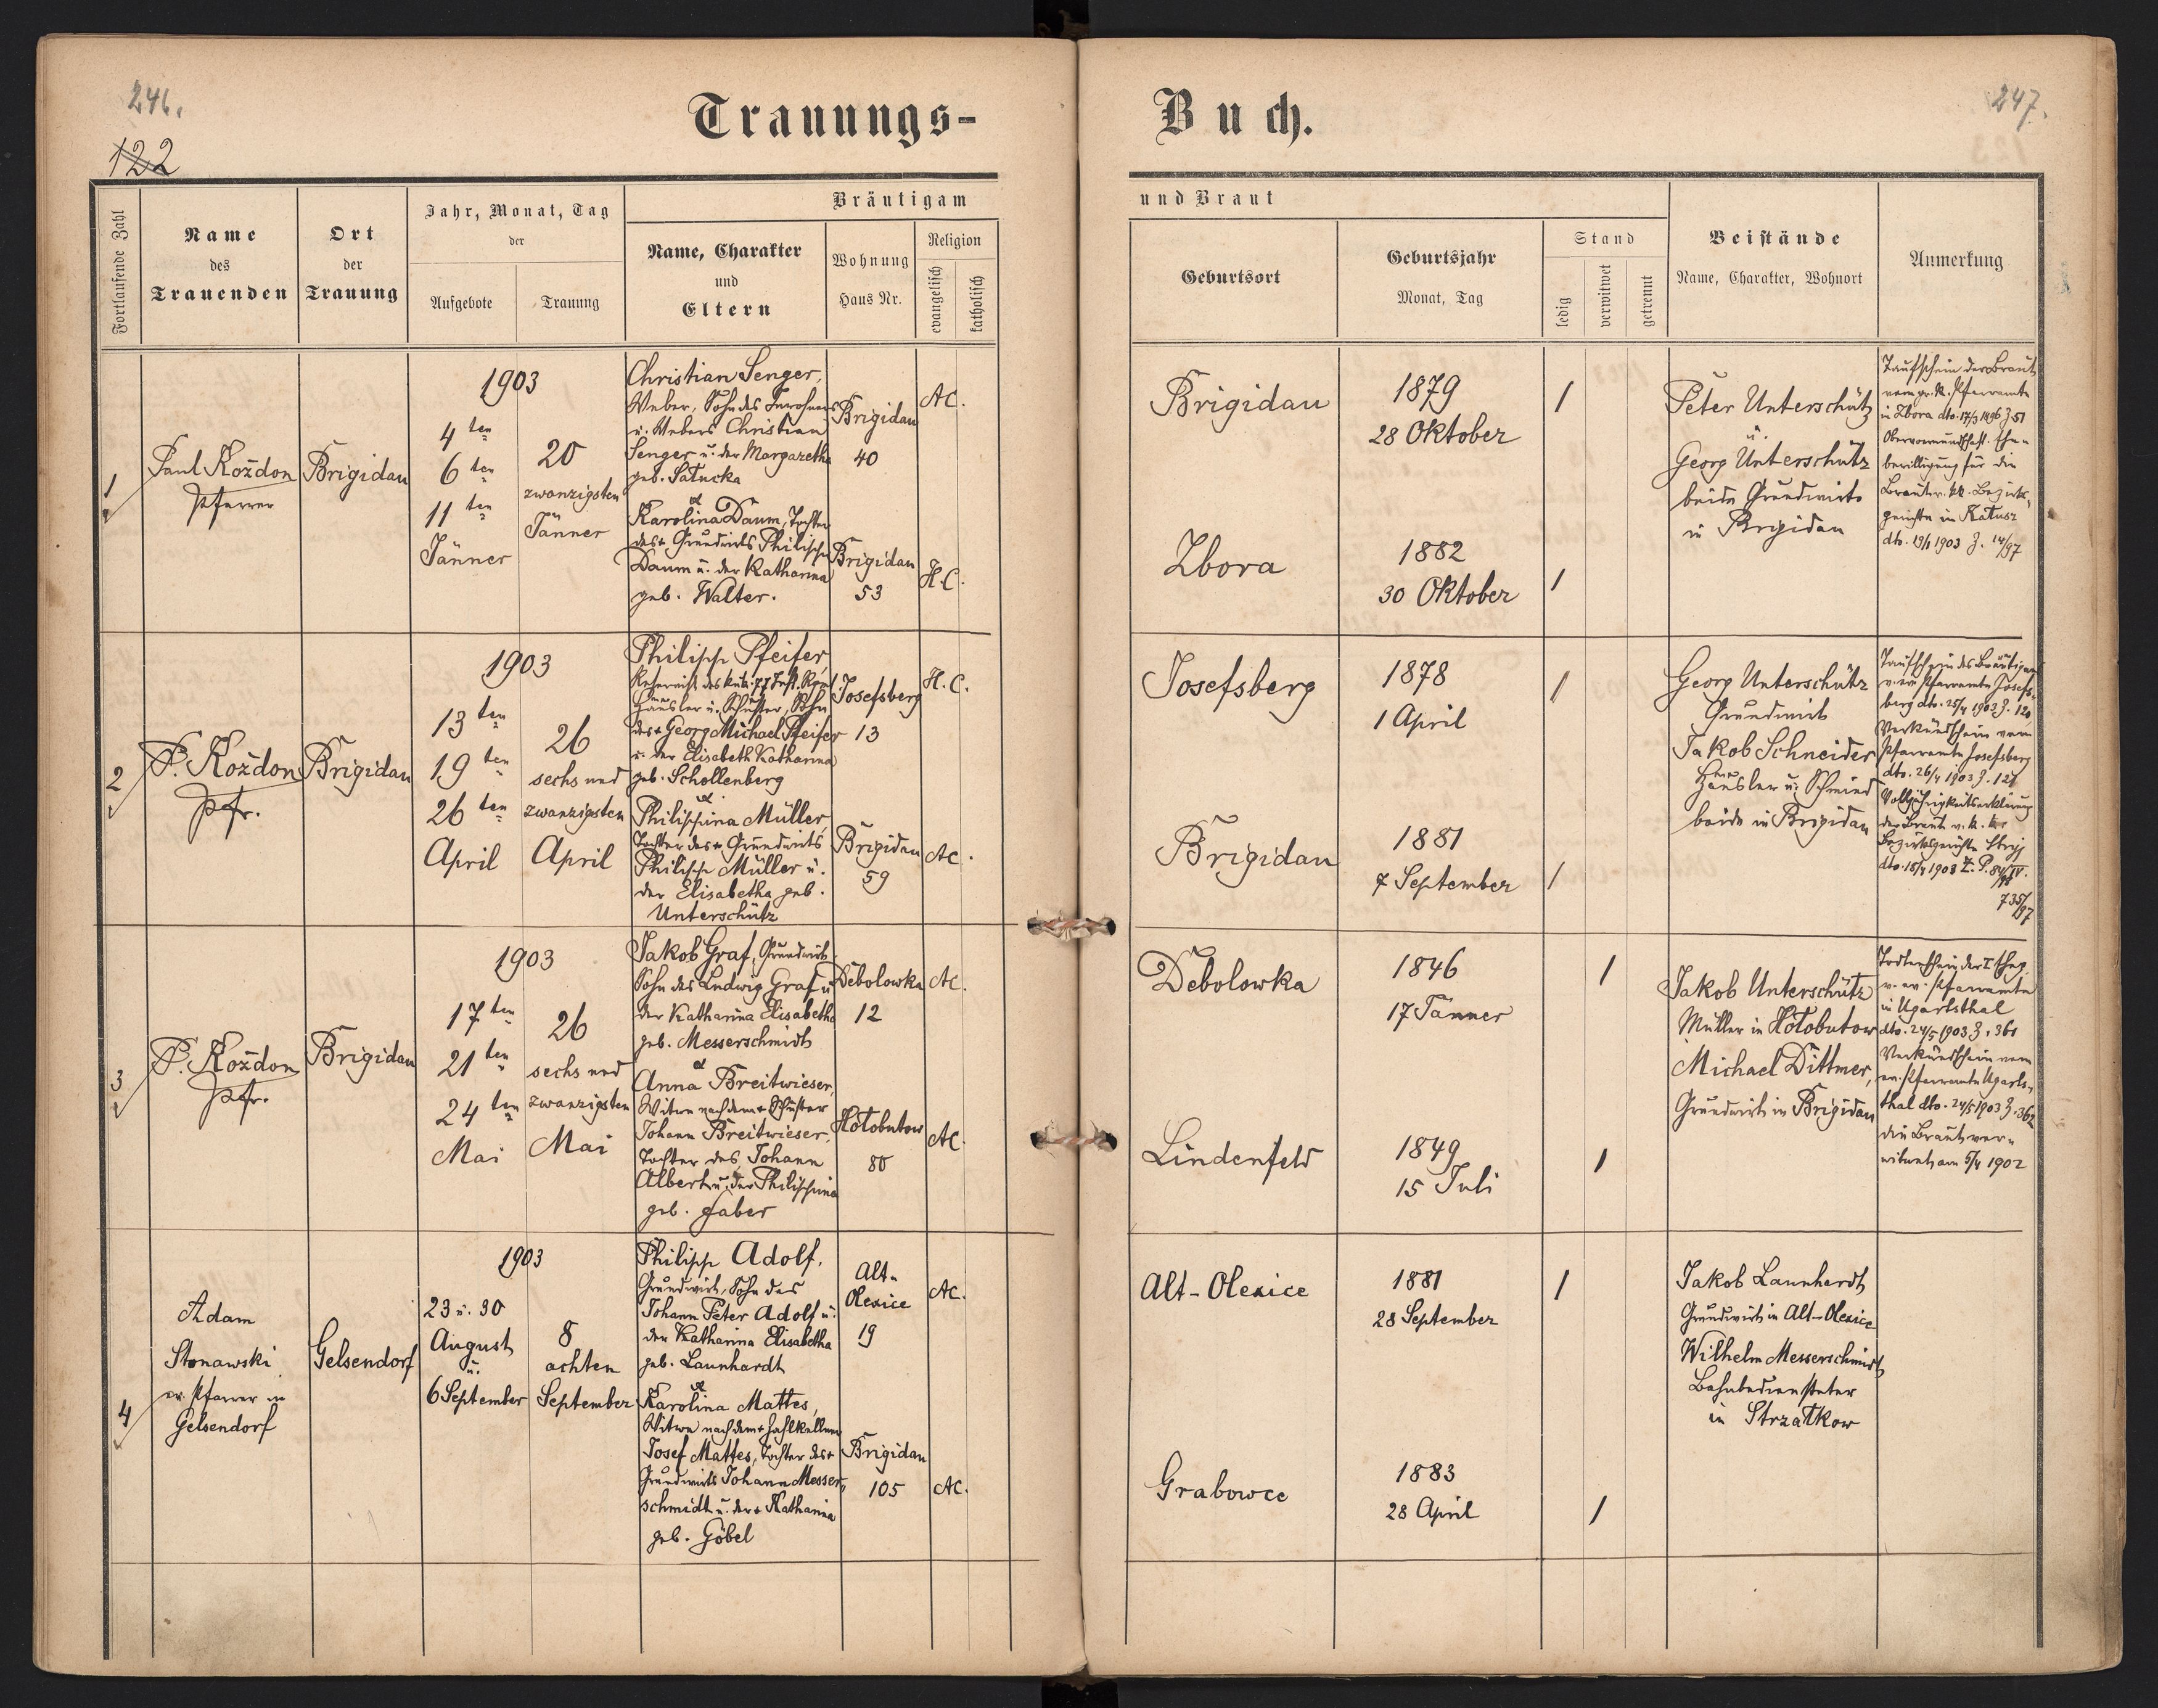 246.
122
Trauungs-
Fortlaufende Zahl
Name
des
Trauenden
Ort
der
Trauung
Jahr, Monat, Tag
der
Aufgebote
Trauung
Bräutigam
Name, Charakter
und
Eltern
Wohnung
Haus Nr.
Religion
evangelisch
katholisch
1
Paul Kożdon
Pfarrer
Brigidau
1903
4ten
6ten
11ten
Jänner
20
zwanzigsten
Jänner
Christian Senger,
Weber, Sohn des Inwohners
u. Webers Christian
Senger u. der Margaretha
geb. Satucka
&
Karolina Daum, Tochter
des + Grundwirts Philipp
Daum u. der Katharina
geb. Walter.
Brigidau
40
Brigidau
53
AC.
H.C.
2
P. Kożdon
Pfr.
Brigidau
1903
13ten
19ten
26ten
April
26
sechs und
zwanzigsten
April
Philipp Pfeifer,
Reservist des k.u.k. 77 Inft. Rgmt
Häusler u. Schuster, Sohn
des + Georg Michael Pfeifer
u. der Elisabeth Katharina
geb. Schollenberg
&
Philippina Müller,
Tochter des + Grundwirts
Philipp Müller u.
der Elisabetha geb.
Unterschütz
Josefsberg
13
Brigidau
59
H.C.
AC.
3
P. Kożdon
Pfr.
Brigidau
1903
17ten
21ten
24ten
Mai
26
sechs und
zwanzigsten
Mai
Jakob Graf, Grundwirt
Sohn des Ludwig Graf u.
der Katharina Elisabetha
geb. Messerschmidt
&
Anna Breitwieser,
Witwe nach dem + Schuster
Johann Breitwieser,
Tochter des Johann
Albert u. der Philippina
geb. Faber
Debolowka
12
Hołobutow
80
AC.
AC.
4
Adam
Stonawski
ev. Pfarrer in
Gelsendorf
Gelsendorf
1903
23 u. 30
August
u.
6 September
8
achten
September
Philipp Adolf,
Grundwirt, Sohn des
Johann Peter Adolf u.
der Katharina Elisabetha
geb. Launhardt
&
Karolina Mattes,
Witwe nach dem + Zahlkellner
Josef Mattes, Tochter des +
Grundwirts Johann Messer-
schmidt u. der + Katharina
geb. Göbel
Alt-
Olexice
19
Brigidau
105
AC.
AC.
247.
Buch.
und Braut
Geburtsort
Geburtsjahr
Monat, Tag
Stand
ledig
verwitwet
getrennt
Beistände
Name, Charakter, Wohnort
Anmerkung
Brigidau
1879
28 Oktober
1
Zbora
1882
30 Oktober
1
Peter Unterschütz
u.
Georg Unterschütz
beide Grundwirte
in Brigidau
Taufschein der Braut
vom gr. k. Pfarramte
in Zbora dto. 17/3 1896 Z 51
Obervormundschaft. Ehe-
bewilligung für die
Braut v. k.k. Bezirks-
gerichte in Kałusz
dto. 19/1 1903 Z. 14/97
Josefsberg
1878
1 April
1
Brigidau
1881
7 September
1
Georg Unterschütz
Grundwirt
Jakob Schneider
Häusler u. Schmied
beide in Brigidau
Taufschein des Bräutigams
v. ev. Pfarramte Josefs-
berg dto. 25/4 1903 Z. 120,
Verkündschein vom
Pfarramte Josefsberg
dto. 26/4 1903 Z. 121
Volljährigkeitserklärung
der Braut v. k. k.
Bezirksgerichte Stryj
dto. 15/4 1903 Z. P. 84/IV.
735/97
Debolowka
1846
17 Jänner
1
Lindenfeld
1849
15 Juli
1
Jakob Unterschütz
Müller in Hołobutow
Michael Dittmer,
Grundwirt in Brigidau
Todtenschein der I. Ehe
v. ev. Pfarramte
in Ugartsthal
dto. 24/5 1903 Z. 361
Verkündschein vom
ev. Pfarramte Ugarts-
thal dto. 24/5 1903 Z. 362
die Braut ver-
witwet am 5/4 1902
Alt-Olexice
1881
28 September
1
Grabowce
1883
28 April
1
Jakob Launhardt
Grundwirt in Alt-Olexice
Wilhelm Messerschmidt
Bahnbediensteter
in Strzałkow